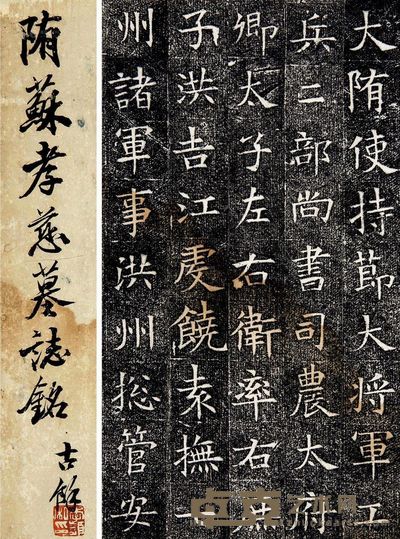 大隋使持節大将軍工
兵二部尚書司農太府
卿太子左右衛率右庶
子洪吉江虔饒袁撫七
州諸軍事洪州揔管安
隋蘇孝慈墓誌銘 古餘